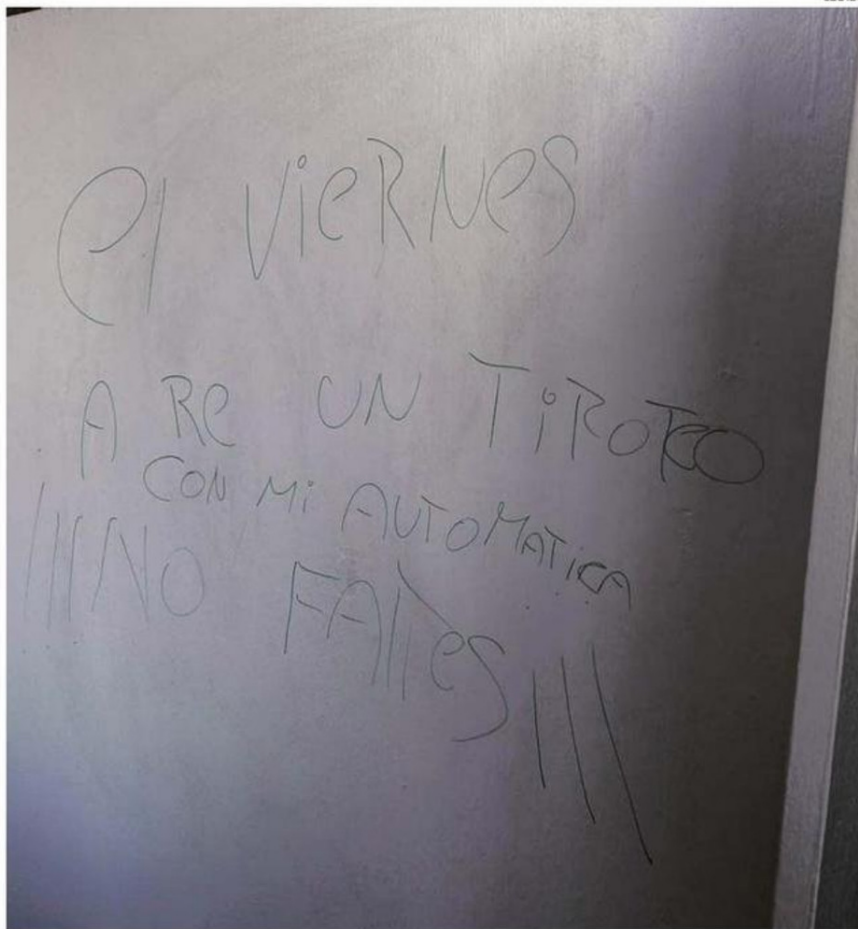 el VieRNes
A Re UN TiROTeO
CON Mi AUTOMATiCA
¡¡¡NO FAlTes!!!